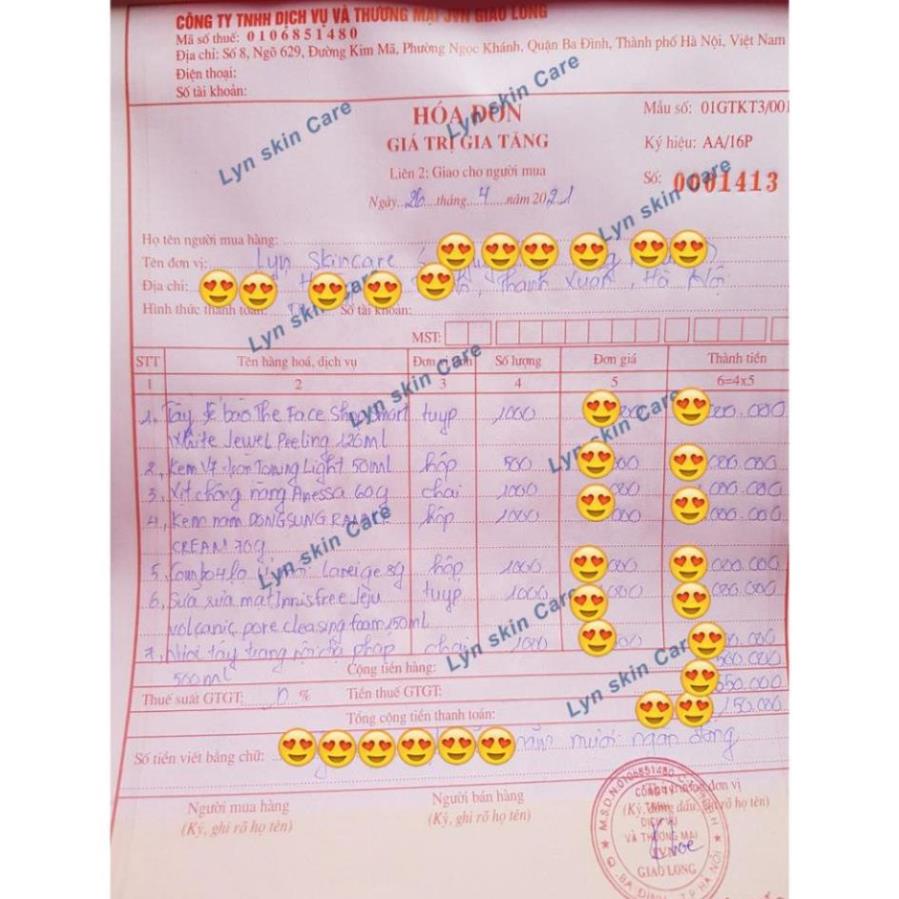 CÔNG TY TNHH DỊCH VỤ VÀ THƯƠNG MẠI JVN GIAO LONG
Mã số thuế: 0106851480
Địa chỉ: Số 8, Ngõ 629, Đường Kim Mã, Phường Ngọc Khánh, Quận Ba Đình, Thành phố Hà Nội, Việt Nam
Điện thoại:
Số tài khoản:
HÓA ĐƠN
GIÁ TRỊ GIA TĂNG
Liên 2: Giao cho người mua
Ngày 26 tháng 4 năm 2021
Mẫu số: 01GTKT3/001
Ký hiệu: AA/16P
Số: 0001413
Họ tên người mua hàng:
Tên đơn vị: Lyn Skincare
Địa chỉ: Thanh Xuân, Hà Nội
Hình thức thanh toán: Số tài khoản:
MST:
STT Tên hàng hoá, dịch vụ Đơn vị Số lượng Đơn giá Thành tiền
1 2 3 4 5 6=4x5
1. Tẩy tế bào The Face Shop Smart tuyp 1000 000.000
White Jewel Peeling 120ml
2. Kem V7 Toning Light 50ml hộp 500 000.000
3. Xịt chống nắng Anessa 60g chai 1000 000.000
4. Kem nám DONGSUNG hộp 1000 000.000
CREAM 70g
5. Laneige 8g hộp 1000 000.000
6. Sữa rửa mặt Innisfree Jeju tuyp 1000 000.000
volcanic pore cleasing foam 150ml
7. tẩy trang pháp chai 1000 000
500ml Cộng tiền hàng: 500.000
Thuế suất GTGT: 10 % Tiền thuế GTGT: 650.000
Tổng cộng tiền thanh toán: 150.000
Số tiền viết bằng chữ: năm mươi ngàn đồng
Người mua hàng
(Ký, ghi rõ họ tên)
Người bán hàng
(Ký, ghi rõ họ tên)
M.S.D.N:0106851480
CÔNG TY
TNHH
DỊCH VỤ
VÀ THƯƠNG MẠI
JVN
GIAO LONG
Q. BA ĐÌNH - TP HÀ NỘI
Lyn skin Care
Lyn skin Care
Lyn skin Care
Lyn skin Care
Lyn skin Care
Lyn skin Care
Lyn skin Care
Lyn skin Care
Lyn skin Care
Lyn skin Care